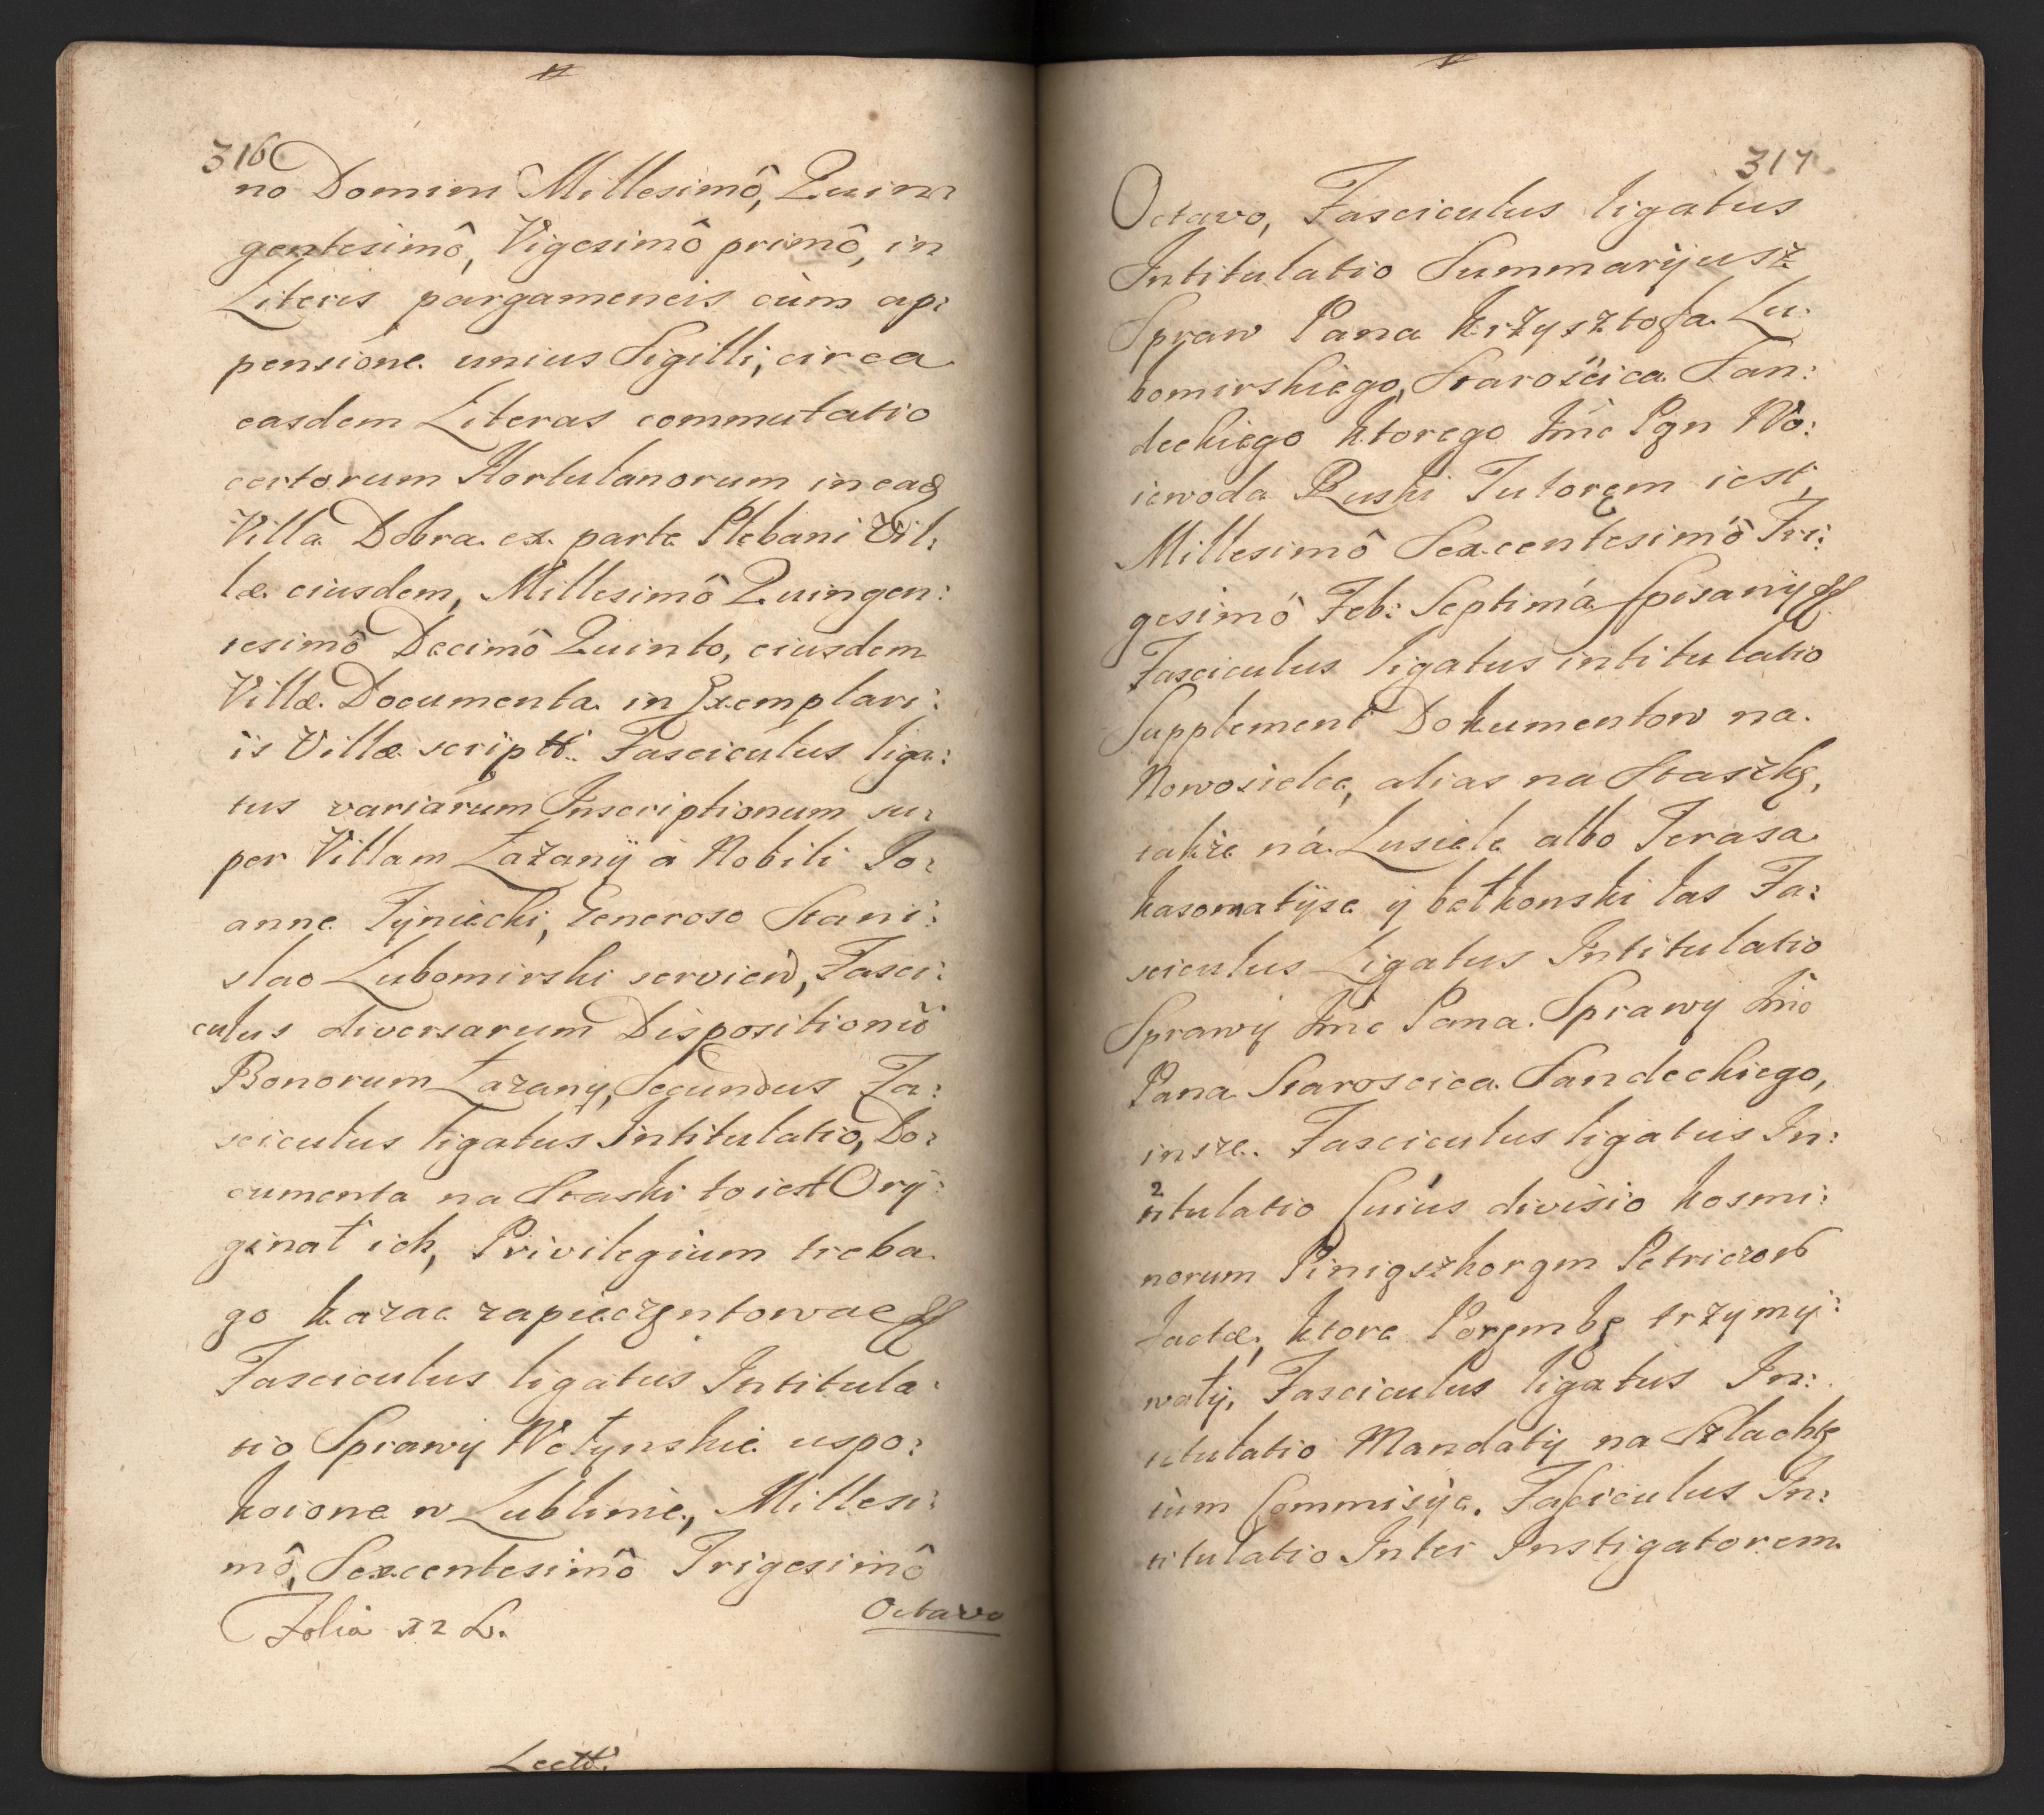 316
no Domini Millesimô, Quin:
gentesimô, Vigesimô primô, in
Literis pargameneis cùm ap:
pensione unius Sigilli, circa
easdem Literas commutatio
certorum Hortulanorum in eadꝫ
Villa Dobra ex parte Plebani Vil:
læ eiusdem, Millesimô Quingen:
tesimô Decimô Quinto, eiusdem
Villæ Documenta in Exemplari:
is Villæ scriptt: Fasciculus liga:
tus variarum Inscriptionum su:
per Villam Łazanÿ à Nobili Jo:
anne Tÿniecki, Generoso Stani:
slao Lubomirski serviend, Fasci:
culus diversarum Dispositionũ
Bonorum Łazanÿ, Secundus Fa:
sciculus ligatus Intitulatio, Do:
cumenta na Staski to iest Orÿ:
ginał ich, Privilegium treba
go kazac zapieczęntowac
Fasciculus ligatus Intitula:
tio Sprawÿ Wołynskie uspo:
koione w Lublinie, Millesi:
mô, Sexcentesimô Trigesimô
Folia 22 L.
Octavo
Lectt:
317
Octavo, Fasciculus ligatus
Intitulatio Summarÿusz
Spraw Pana Krzysztofa Lu:
bomirskiego, Starościca San:
deckiego ktorego Jmć Pąn Wo:
iewoda Ruski Tutoręm iest,
Millesimô Sexcentesimô Tri:
gesimô Feb: Septimá spisanÿ
Fasciculus ligatus intitulatio
Supplement Dokumentow na
Nowosielce, alias na Staszkę,
także ná Lusiele albo Terasa
kasomatÿse ÿ bełkonski las Fa:
sciculus Ligatus Intitulatio
Sprawÿ Jmć Pana Sprawÿ Jmć
Pana Staroscica Sandeckiego,
insze. Fasciculus ligatus In:
titulatio Cuius divisio kosmi:
norum Pinigszkorgm Petriczonỏ
factæ, ktore Porembę trzymÿ:
wałÿ, Fasciculus ligatus In:
titulatio Mandatÿ na Szlachtę
cùm Commisÿe. Fasciculus In:
titulatio Inter Instigatorem